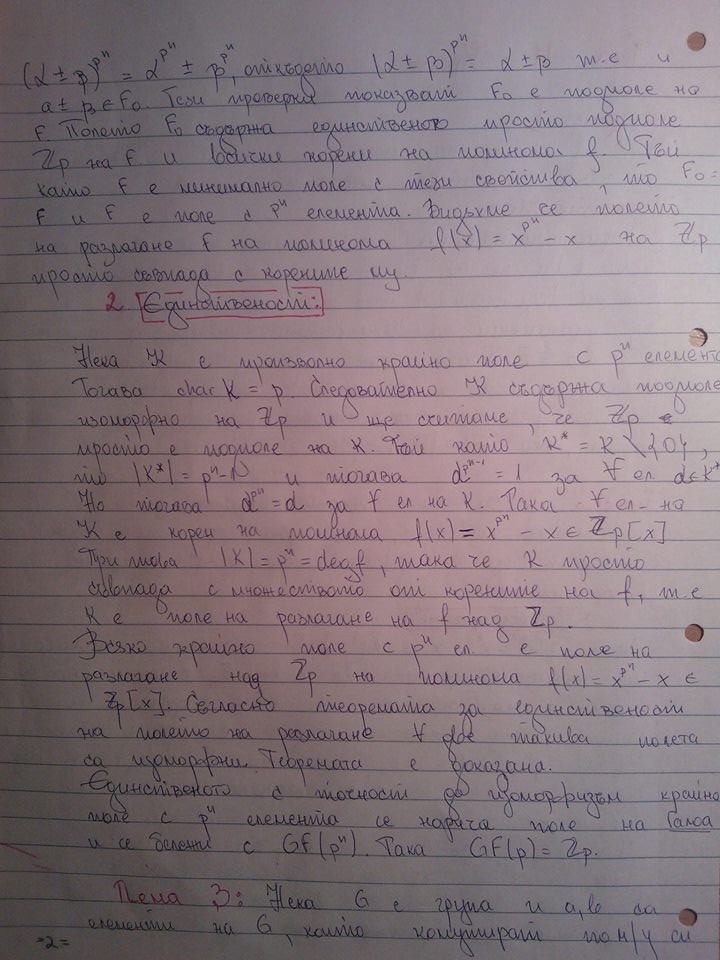 (α ± β)^pⁿ = α^pⁿ ± β^pⁿ, откъдето (α ± β)^pⁿ = α ± β т.е и
α ± β ∈ F₀. Тези проверки показват F₀ е подполе на
F. Полето F₀ съдържа единственото просто подполе
ℤp на F и всички корени на полинома f. Тъй
като F е минимално поле с тези свойства, то F₀ =
F и F е поле с pⁿ елемента. Видяхме че полето
на разлагане F на полинома f(x) = x^pⁿ - x на ℤp
просто съвпада с корените му.
2. Единственост:
Нека K е произволно крайно поле с pⁿ елемента
Тогава char K = p. Следователно K съдържа подполе
изоморфно на ℤp и ще считаме, че ℤp
просто е подполе на K. Тъй като K* = K \ {0},
то |K*| = pⁿ-1 и тогава α^pⁿ⁻¹ = 1 за ∀ ел. α ∈ K*
Но тогава α^pⁿ = α за ∀ ел на K. Така ∀ ел- на
K е корен на полинома f(x) = x^pⁿ - x ∈ ℤp[x]
При това |K| = pⁿ = deg f, така че K просто
съвпада с множеството от корените на f, т.е
K е поле на разлагане на f над ℤp.
Всяко крайно поле с pⁿ ел. е поле на
разлагане над ℤp на полинома f(x) = x^pⁿ - x ∈
ℤp[x]. Съгласно теоремата за единственост
на полето на разлагане ∀ две такива полета
са изоморфни. Теоремата е доказана.
Единственото с точност до изоморфизъм крайно
поле с pⁿ елемента се нарича поле на Галоа
и се бележи с GF(pⁿ). Така GF(p) = ℤp.
Лема 3: Нека G е група и a, b са
елементи на G, които комутират по м/у си
=2=